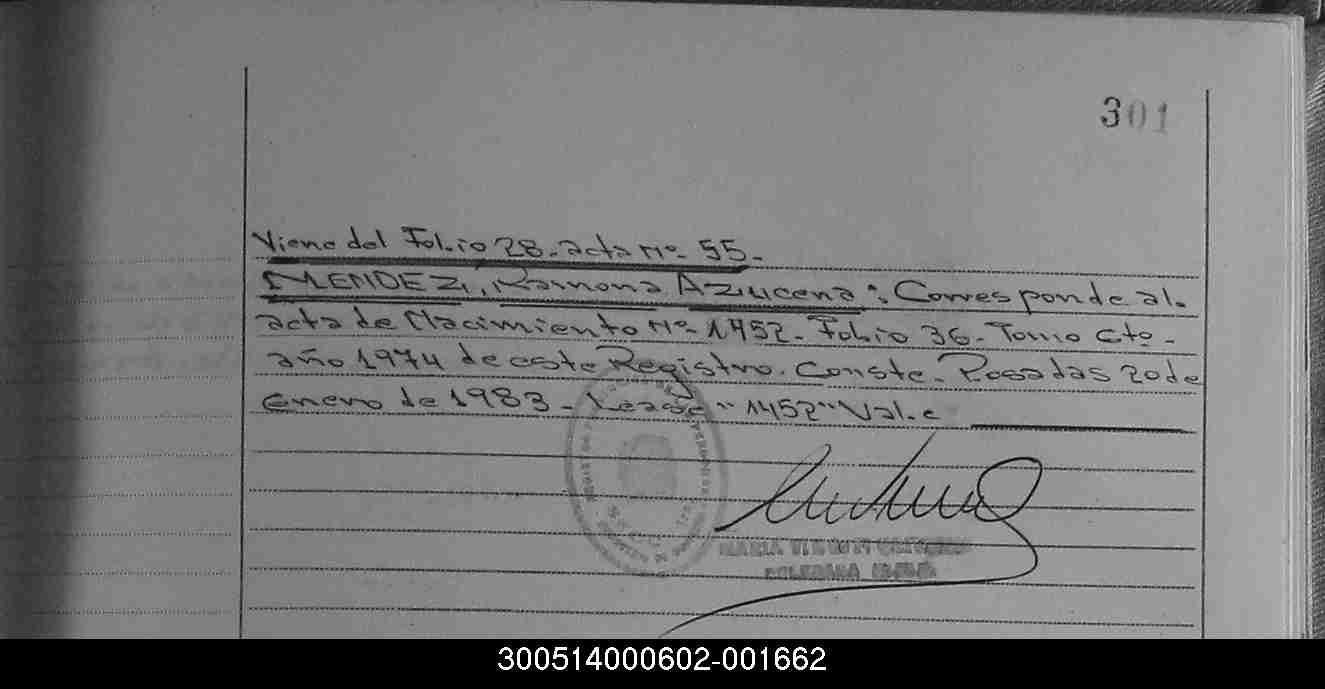 301
Viene del Folio 28. acta Nº 55.-
MENDEZ, Ramona Azucena: Corresponde al.
acta de Nacimiento Nº 1452. Folio 36. Tomo 6to.
año 1974 de este Registro. Conste. Posadas 20 de
Enero de 1983 - Lease "1452" Vale
MARIA
DELEGADA
300514000602-001662